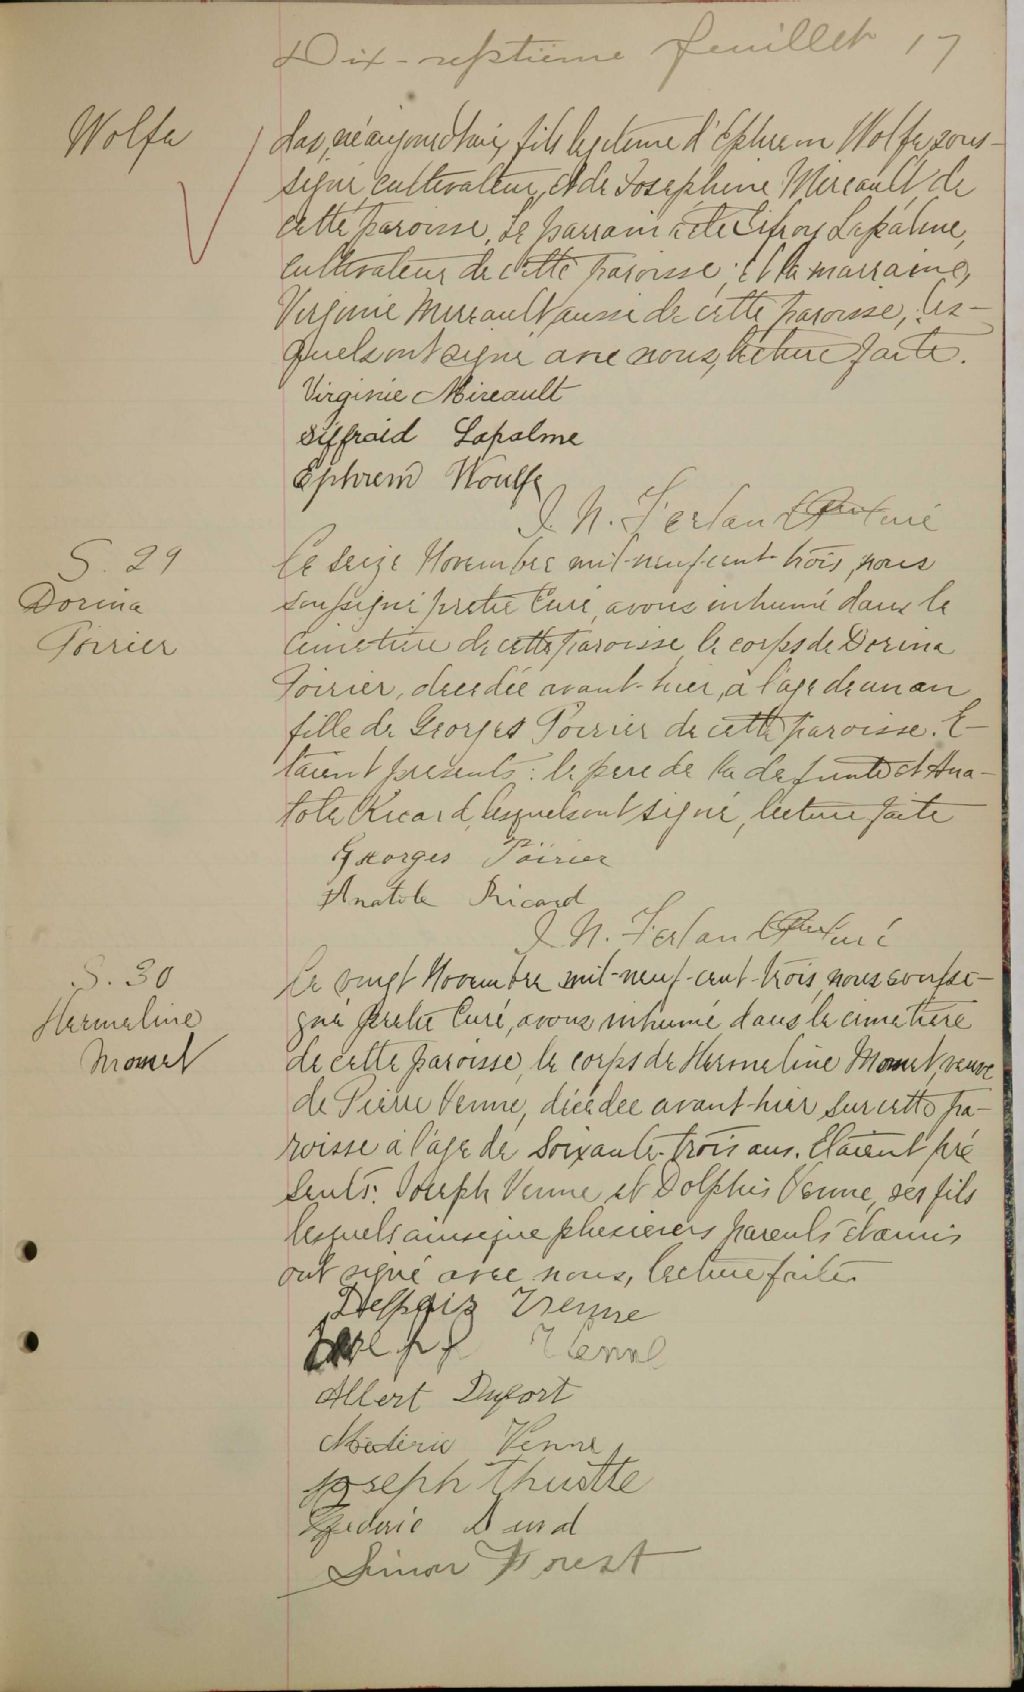 Dix-septième feuillet 17
Wolfe
das, né aujourd'hui, fils legitime d'Ephrem Wolfe, sous-
signé, cultivateur, et de Josephine Mireault, de
cette paroisse. Le parrain a été Sifroy Lapalme,
cultivateur de cette paroisse; et la marraine,
Virginie Mireault aussi de cette paroisse, les-
quels ont signé avec nous, lecture faite.
Virginie Mireault
Siffroid Lapalme
Ephrem Woulfe
J. N. Ferland Ptre Curé
S. 29
Dorina
Poirier
Ce seize Novembre mil-neuf-cent-trois, nous
soussigné pretre Curé, avons inhumé dans le
cimetière de cette paroisse, le corps de Dorina
Poirier, decedée avant-hier, à l'age de un an
fille de Georges Poirier de cette paroisse. E-
taient presents: le pere de la defunte et Ana-
tole Ricard, lesquels ont signé, lecture faite
Georges Poirier
Anatole Ricard
J. N. Ferland Ptre Curé
S. 30
Hermeline
Momet
Ce vingt Novembre mil-neuf-cent-trois, nous soussi-
gné pretre Curé, avons inhumé dans le cimetière
de cette paroisse, le corps de Hermeline Momet, veuve
de Pierre Venne, décédée avant-hier sur cette pa-
roisse à l'age de soixante-trois ans. Etaient pré
sents: Joseph Venne et Dolphis Venne, ses fils
lesquels ainsi que plusieurs parents et amis
ont signé avec nous, lecture faite.
Delphis Venne
Joseph Venne
Albert Dufort
Médéric Venne
Joseph Thuotte
Simon Forest